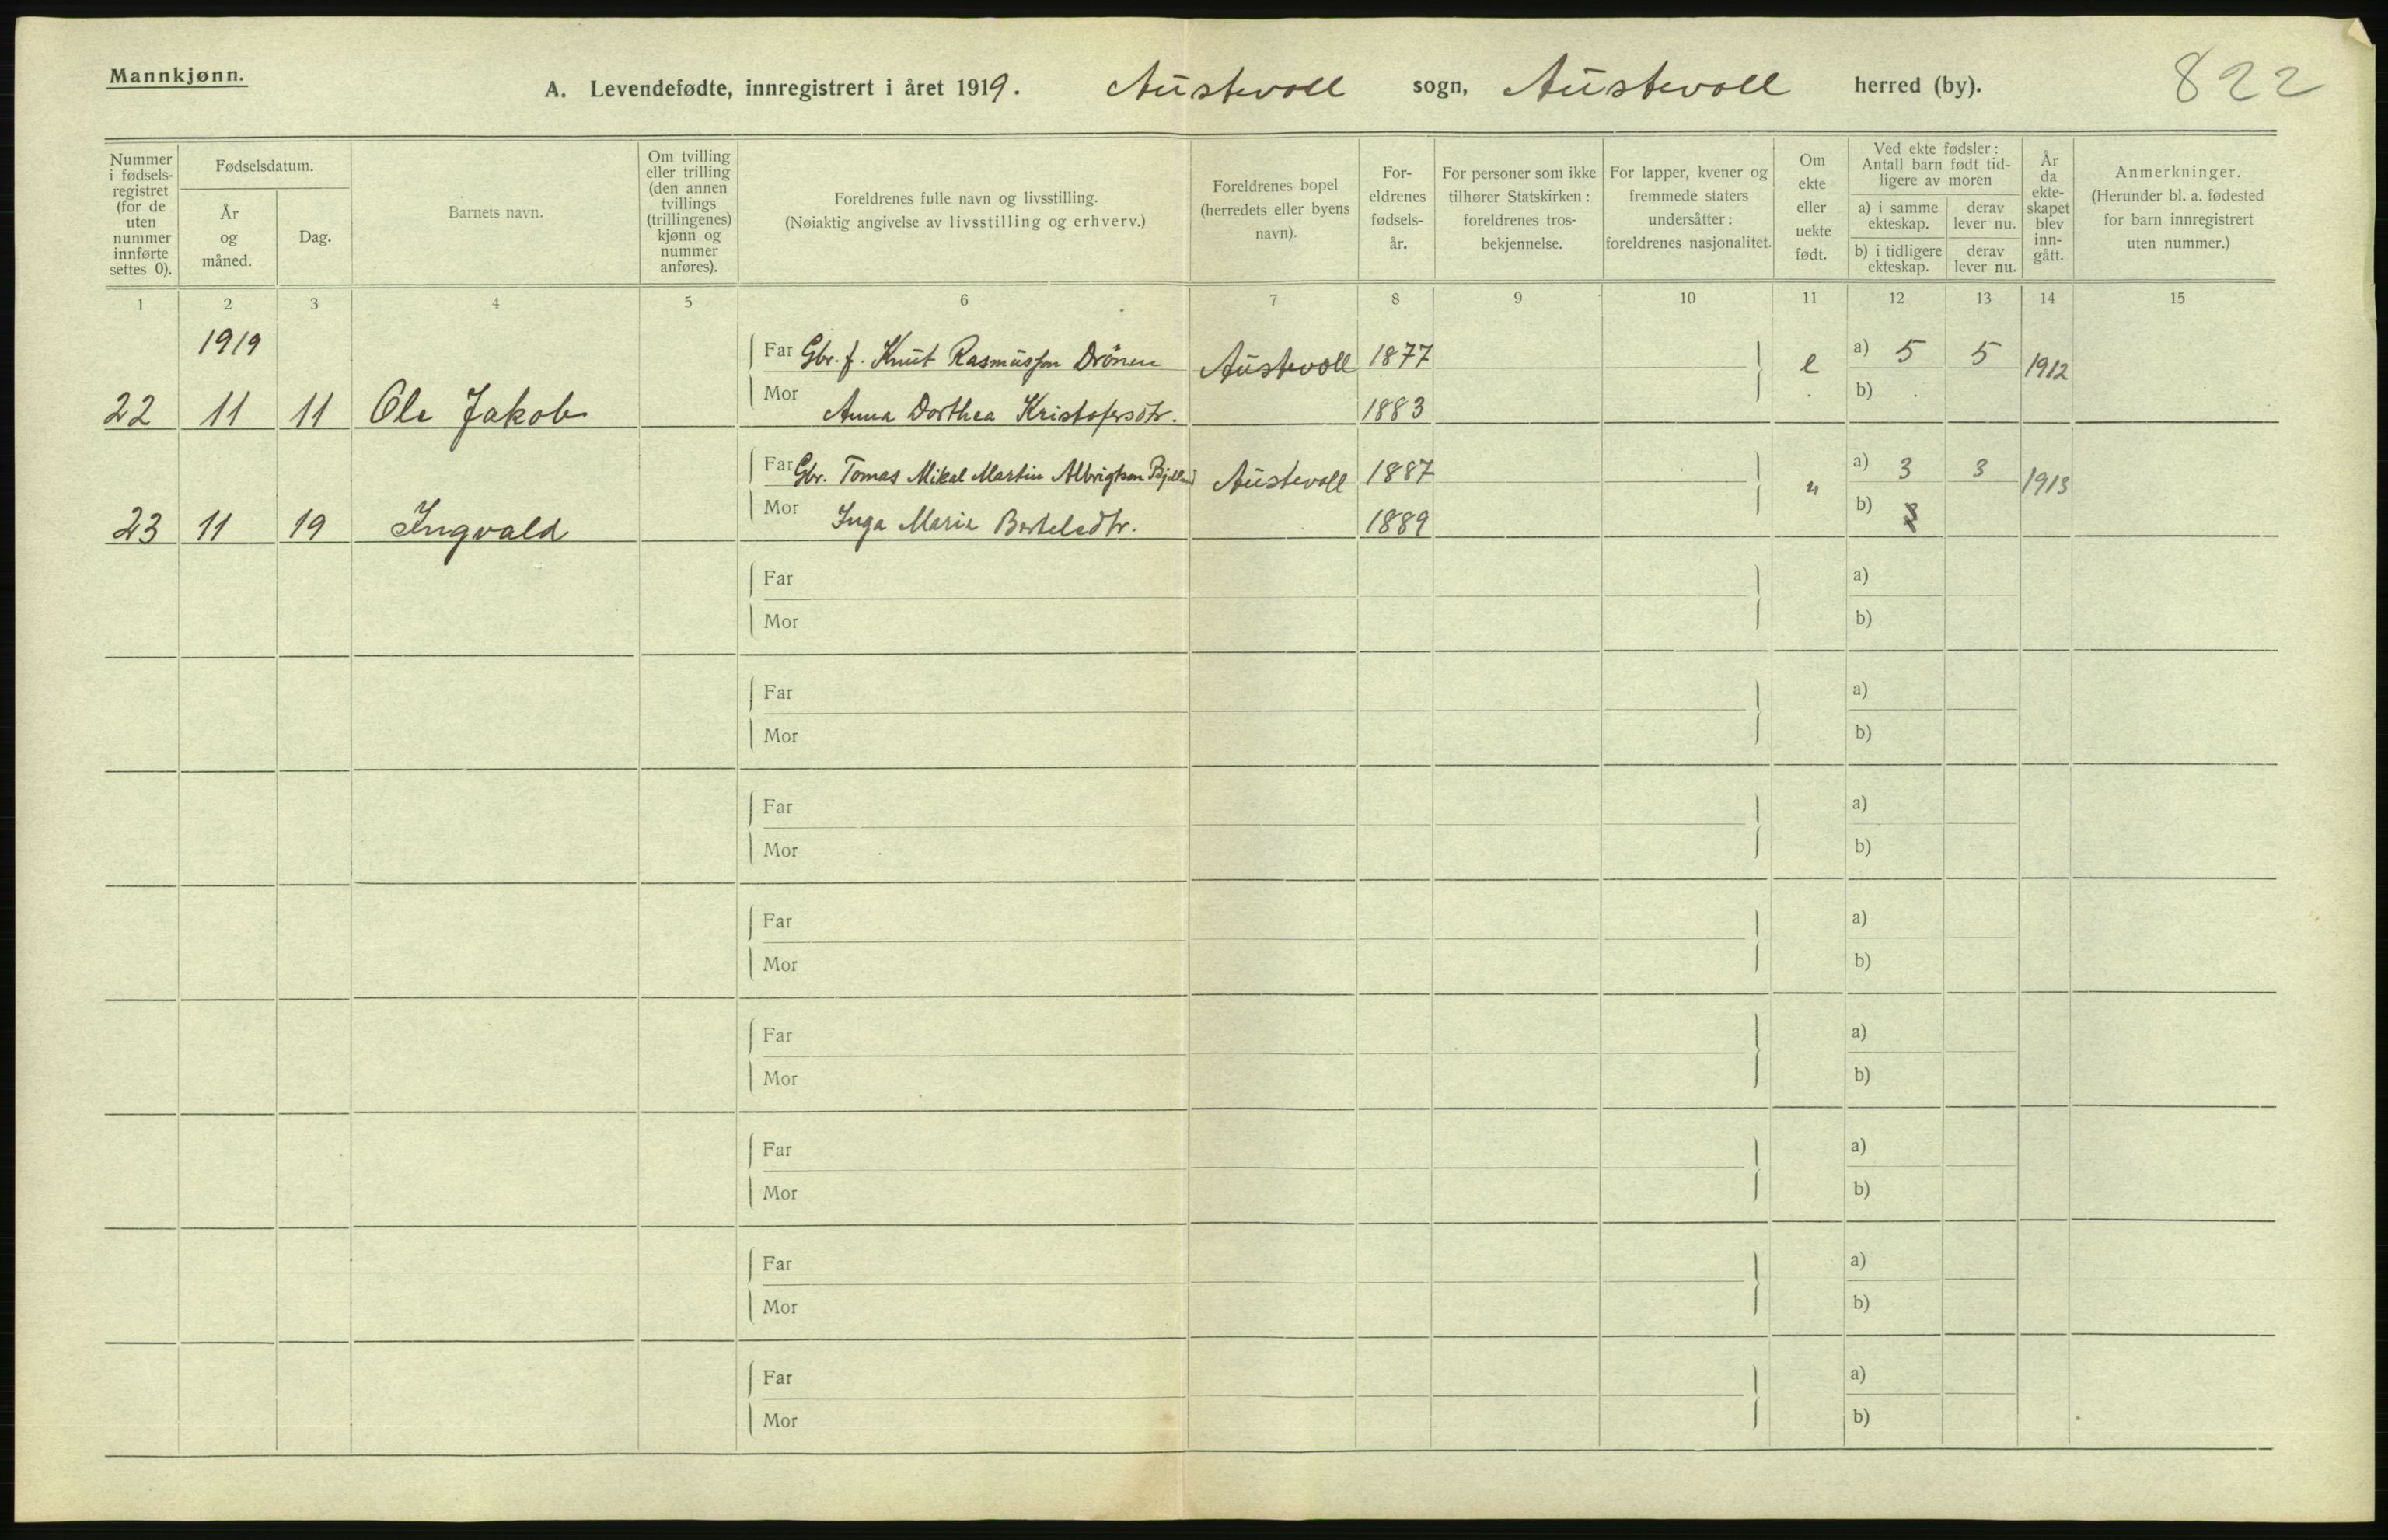 Mannkjønn.
A. Levendefødte, innregistrert i året 1919. Austevoll sogn, Austevoll herred (by). 822
Nummer i fødsels-registret (for de uten nummer innførte settes 0).
Fødselsdatum.
År og måned.
Dag.
Barnets navn.
Om tvilling eller trilling (den annen tvillings (trillingenes) kjønn og nummer anføres).
Foreldrenes fulle navn og livsstilling.
(Nøiaktig angivelse av livsstilling og erhverv.)
Foreldrenes bopel (herredets eller byens navn).
For-eldrenes fødsels-år.
For personer som ikke tilhører Statskirken: foreldrenes tros-bekjennelse.
For lapper, kvener og fremmede staters undersåtter: foreldrenes nasjonalitet.
Om ekte eller uekte født.
Ved ekte fødsler: Antall barn født tid-ligere av moren
a) i samme ekteskap.
derav lever nu.
b) i tidligere ekteskap.
derav lever nu.
År da ekte-skapet blev inn-gått.
Anmerkninger.
(Herunder bl. a. fødested for barn innregistrert uten nummer.)
1 2 3 4 5 6 7 8 9 10 11 12 13 14 15
1919
Far Gbr. f. Knut Rasmussøn Drönen Austevoll 1877 e a) 5 5 1912
22 11 11 Ole Jakob Mor Anna Dorthea Kristofersdtr. 1883 b)
Far Gbr. Tomas Mikal Martin Albrigtson Austevoll 1887 " a) 3 3 1913
23 11 19 Ingvald Mor Inga Maria Bertelsdtr. 1889 b) 3
Far a)
Mor b)
Far a)
Mor b)
Far a)
Mor b)
Far a)
Mor b)
Far a)
Mor b)
Far a)
Mor b)
Far a)
Mor b)
Far a)
Mor b)